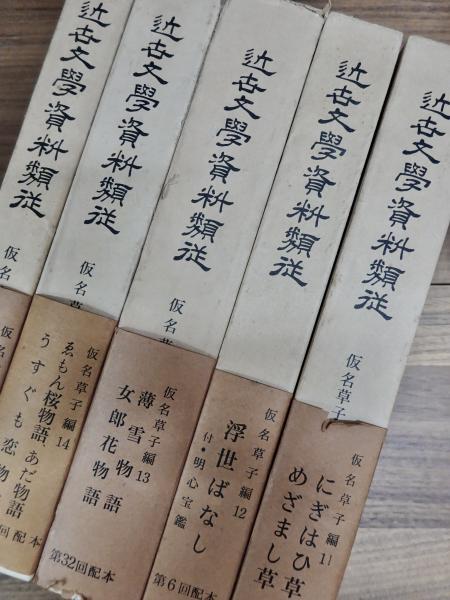 近世文學資料類従
仮名草子
仮名草子編 11
にぎはひ草
めざまし草
近世文學資料類従
仮名草子編 12
浮世ばなし
付・明心宝鑑
第6回配本
近世文學資料類従
仮名草
仮名草子編 13
薄雪物語
女郎花物語
第32回配本
近世文學資料類従
仮名草
仮名草子編 14
ゑもん桜物語、あだ物語
うすぐも恋物
回配本
近世文學資料類従
仮名
仮名